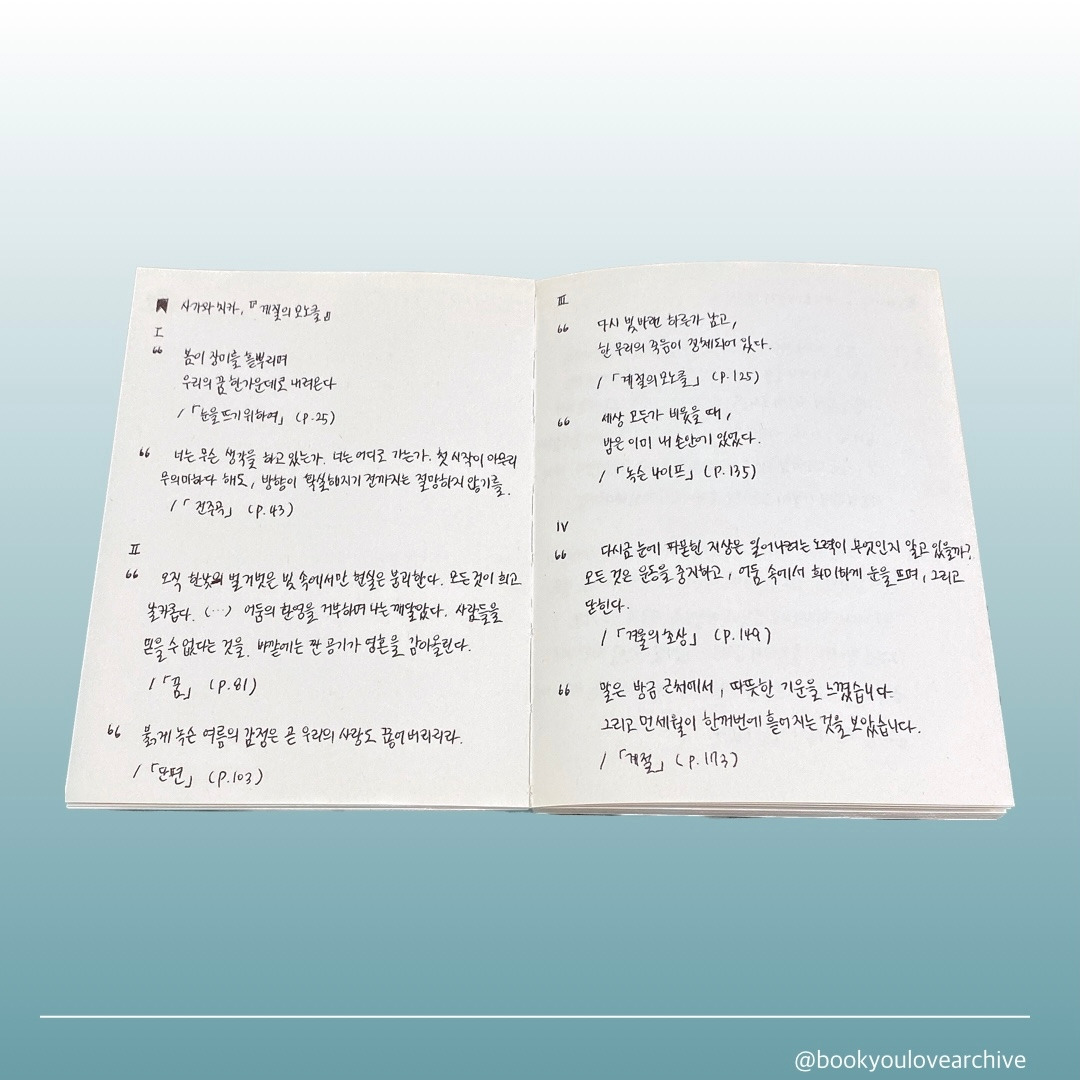 사가와 치카, 『계절의 모노클』
I
“ 봄이 장미를 흩뿌리며
우리의 꿈 한가운데로 내려온다
/「눈을 뜨기 위하여」 (p.25)
“ 너는 무슨 생각을 하고 있는가. 너는 어디로 가는가. 첫 시작이 아무리
무의미하다 해도, 방향이 확실해지기 전까지는 절망하지 않기를.
/「전주곡」 (p.43)
II
“ 오직 한낮의 벌거벗은 빛 속에서만 현실은 붕괴한다. 모든 것이 희고
날카롭다. (…) 어둠의 환영을 거부하며 나는 깨달았다. 사람들을
믿을 수 없다는 것을. 바깥에는 찬 공기가 영혼을 감아올린다.
/「꿈」 (p.81)
“ 붉게 녹슨 여름의 감정은 곧 우리의 사랑도 끊어버리리라.
/「단편」 (p.103)
III
“ 다시 빛바랜 하루가 남고,
한 무리의 죽음이 정체되어 있다.
/「계절의 모노클」 (p.125)
“ 세상 모두가 비웃을 때,
밤은 이미 내 손안에 있었다.
/「녹슨 나이프」 (p.135)
IV
“ 다시금 눈에 파묻힌 지상은 일어나려는 노력이 무엇인지 알고 있을까?
모든 것은 운동을 중지하고, 어둠 속에서 희미하게 눈을 뜨며, 그리고
닫힌다.
/「겨울의 초상」 (p.149)
“ 말은 방금 근처에서, 따뜻한 기운을 느꼈습니다.
그리고 먼 세월이 한꺼번에 흩어지는 것을 보았습니다.
/「계절」 (p.173)
@bookyoulovearchive